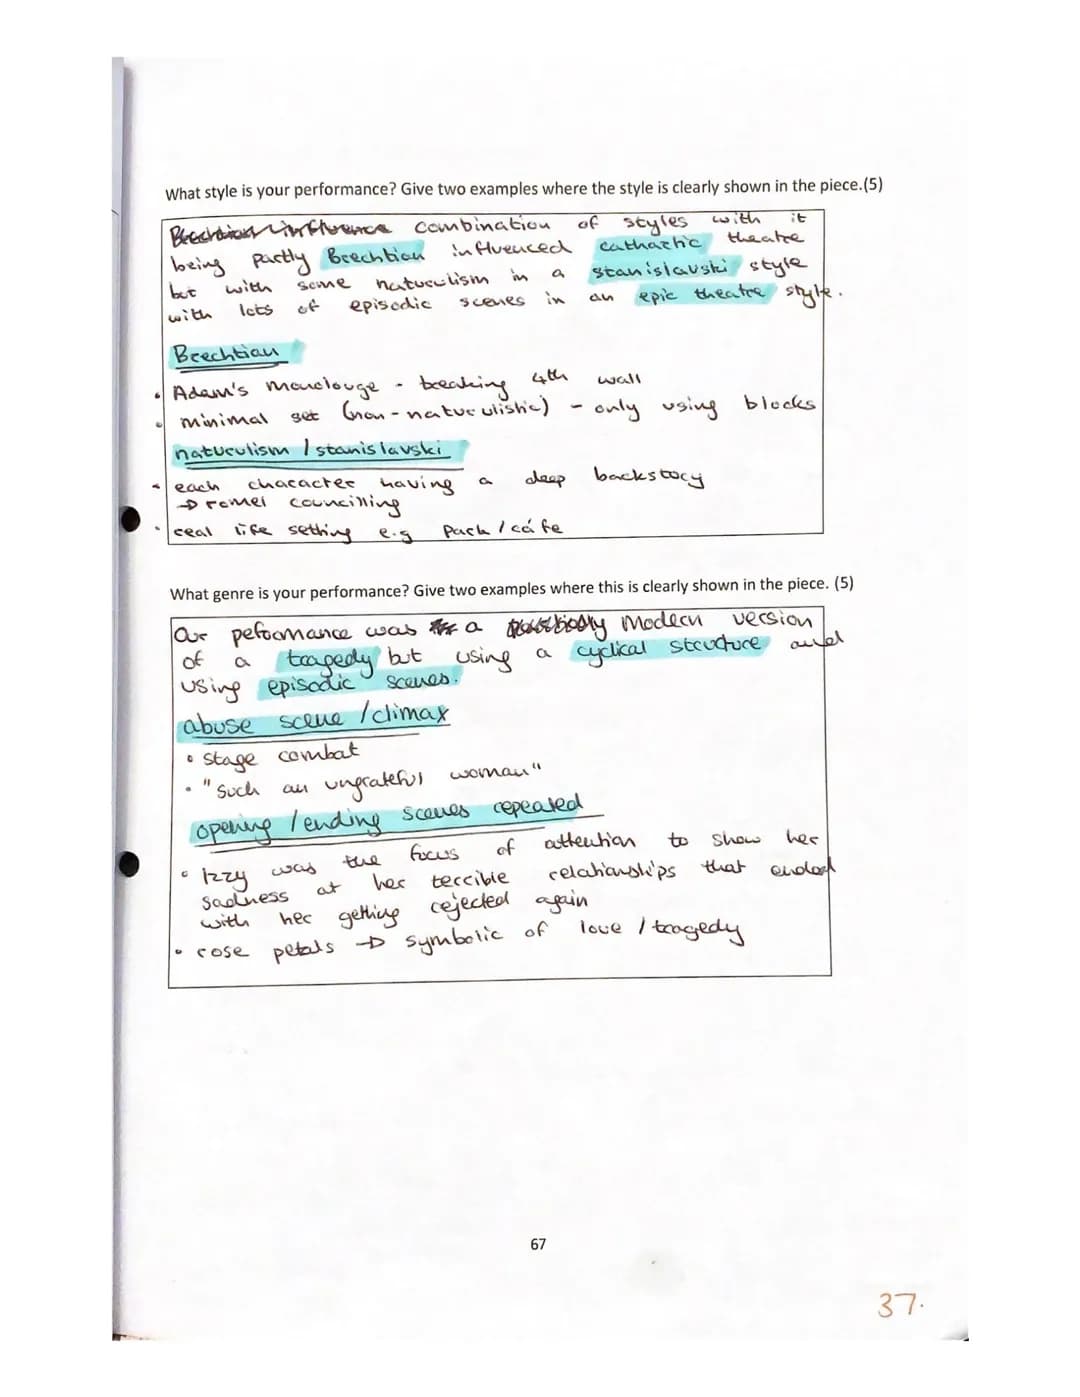 What style is your performance? Give two examples where the style is clearly shown in the piece.(5)
Brechtian influence combination of styles with it
being partly Brechtian influenced cathartic theatre
but with some naturulism in a stanislavski style
with lots of episodic scenes in an epic theatre style.
Brechtian
• Adam's monolouge - breaking 4th wall
• minimal set (non-naturulistic) - only using blocks
naturulism / stanislavski
• each character having a deep backstory
→ romel councilling
• real life setting e.g park / cáfe
What genre is your performance? Give two examples where this is clearly shown in the piece. (5)
Our pefoomance was a Modern version
of a tragedy but using a cyclical structure and
using episodic scenes.
abuse scene / climax
• stage combat
• "such an ungrateful woman"
opening / ending scenes repeated
• Izzy was the focus of attention to show her
sadness at her terrible relationships that ended
with her getting rejected again
• rose petals → symbolic of love / tragedy
67
37.